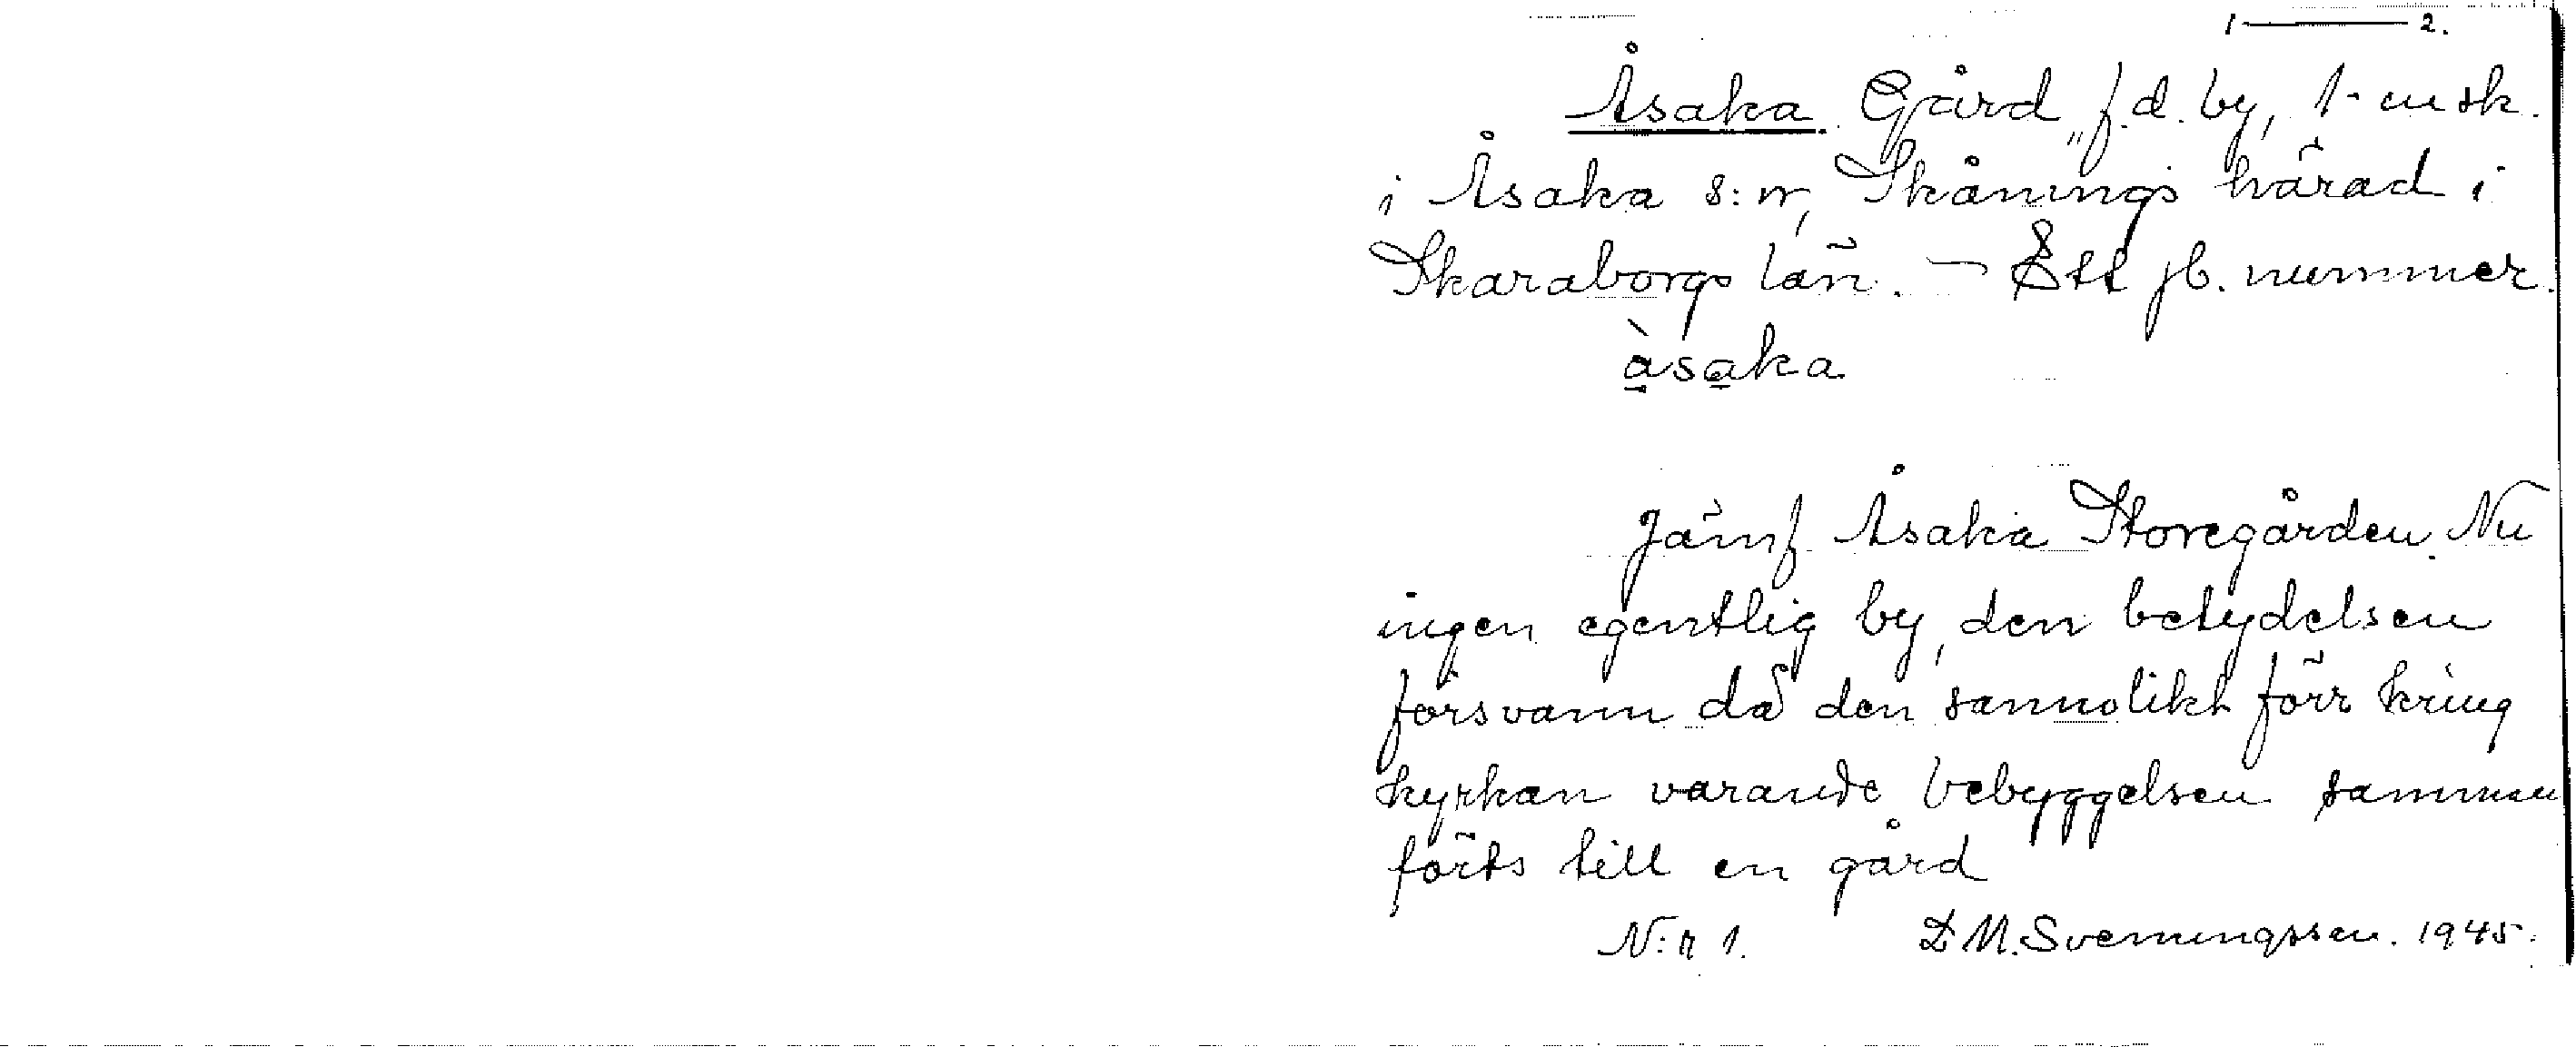 1 — 2.
Åsaka Gård, f.d. by, 1 ensk.
i Åsaka s:n, Skånings härad i
Skaraborgs län. — Ett jb. nummer.
àsaka
Jämf Åsaka Storegården. Nu
ingen egentlig by, den betydelsen
försvann då den sannolikt förr kring
kyrkan varande bebyggelsen samman
förts till en gård
N:r 1. D M. Svenningssen. 1945.